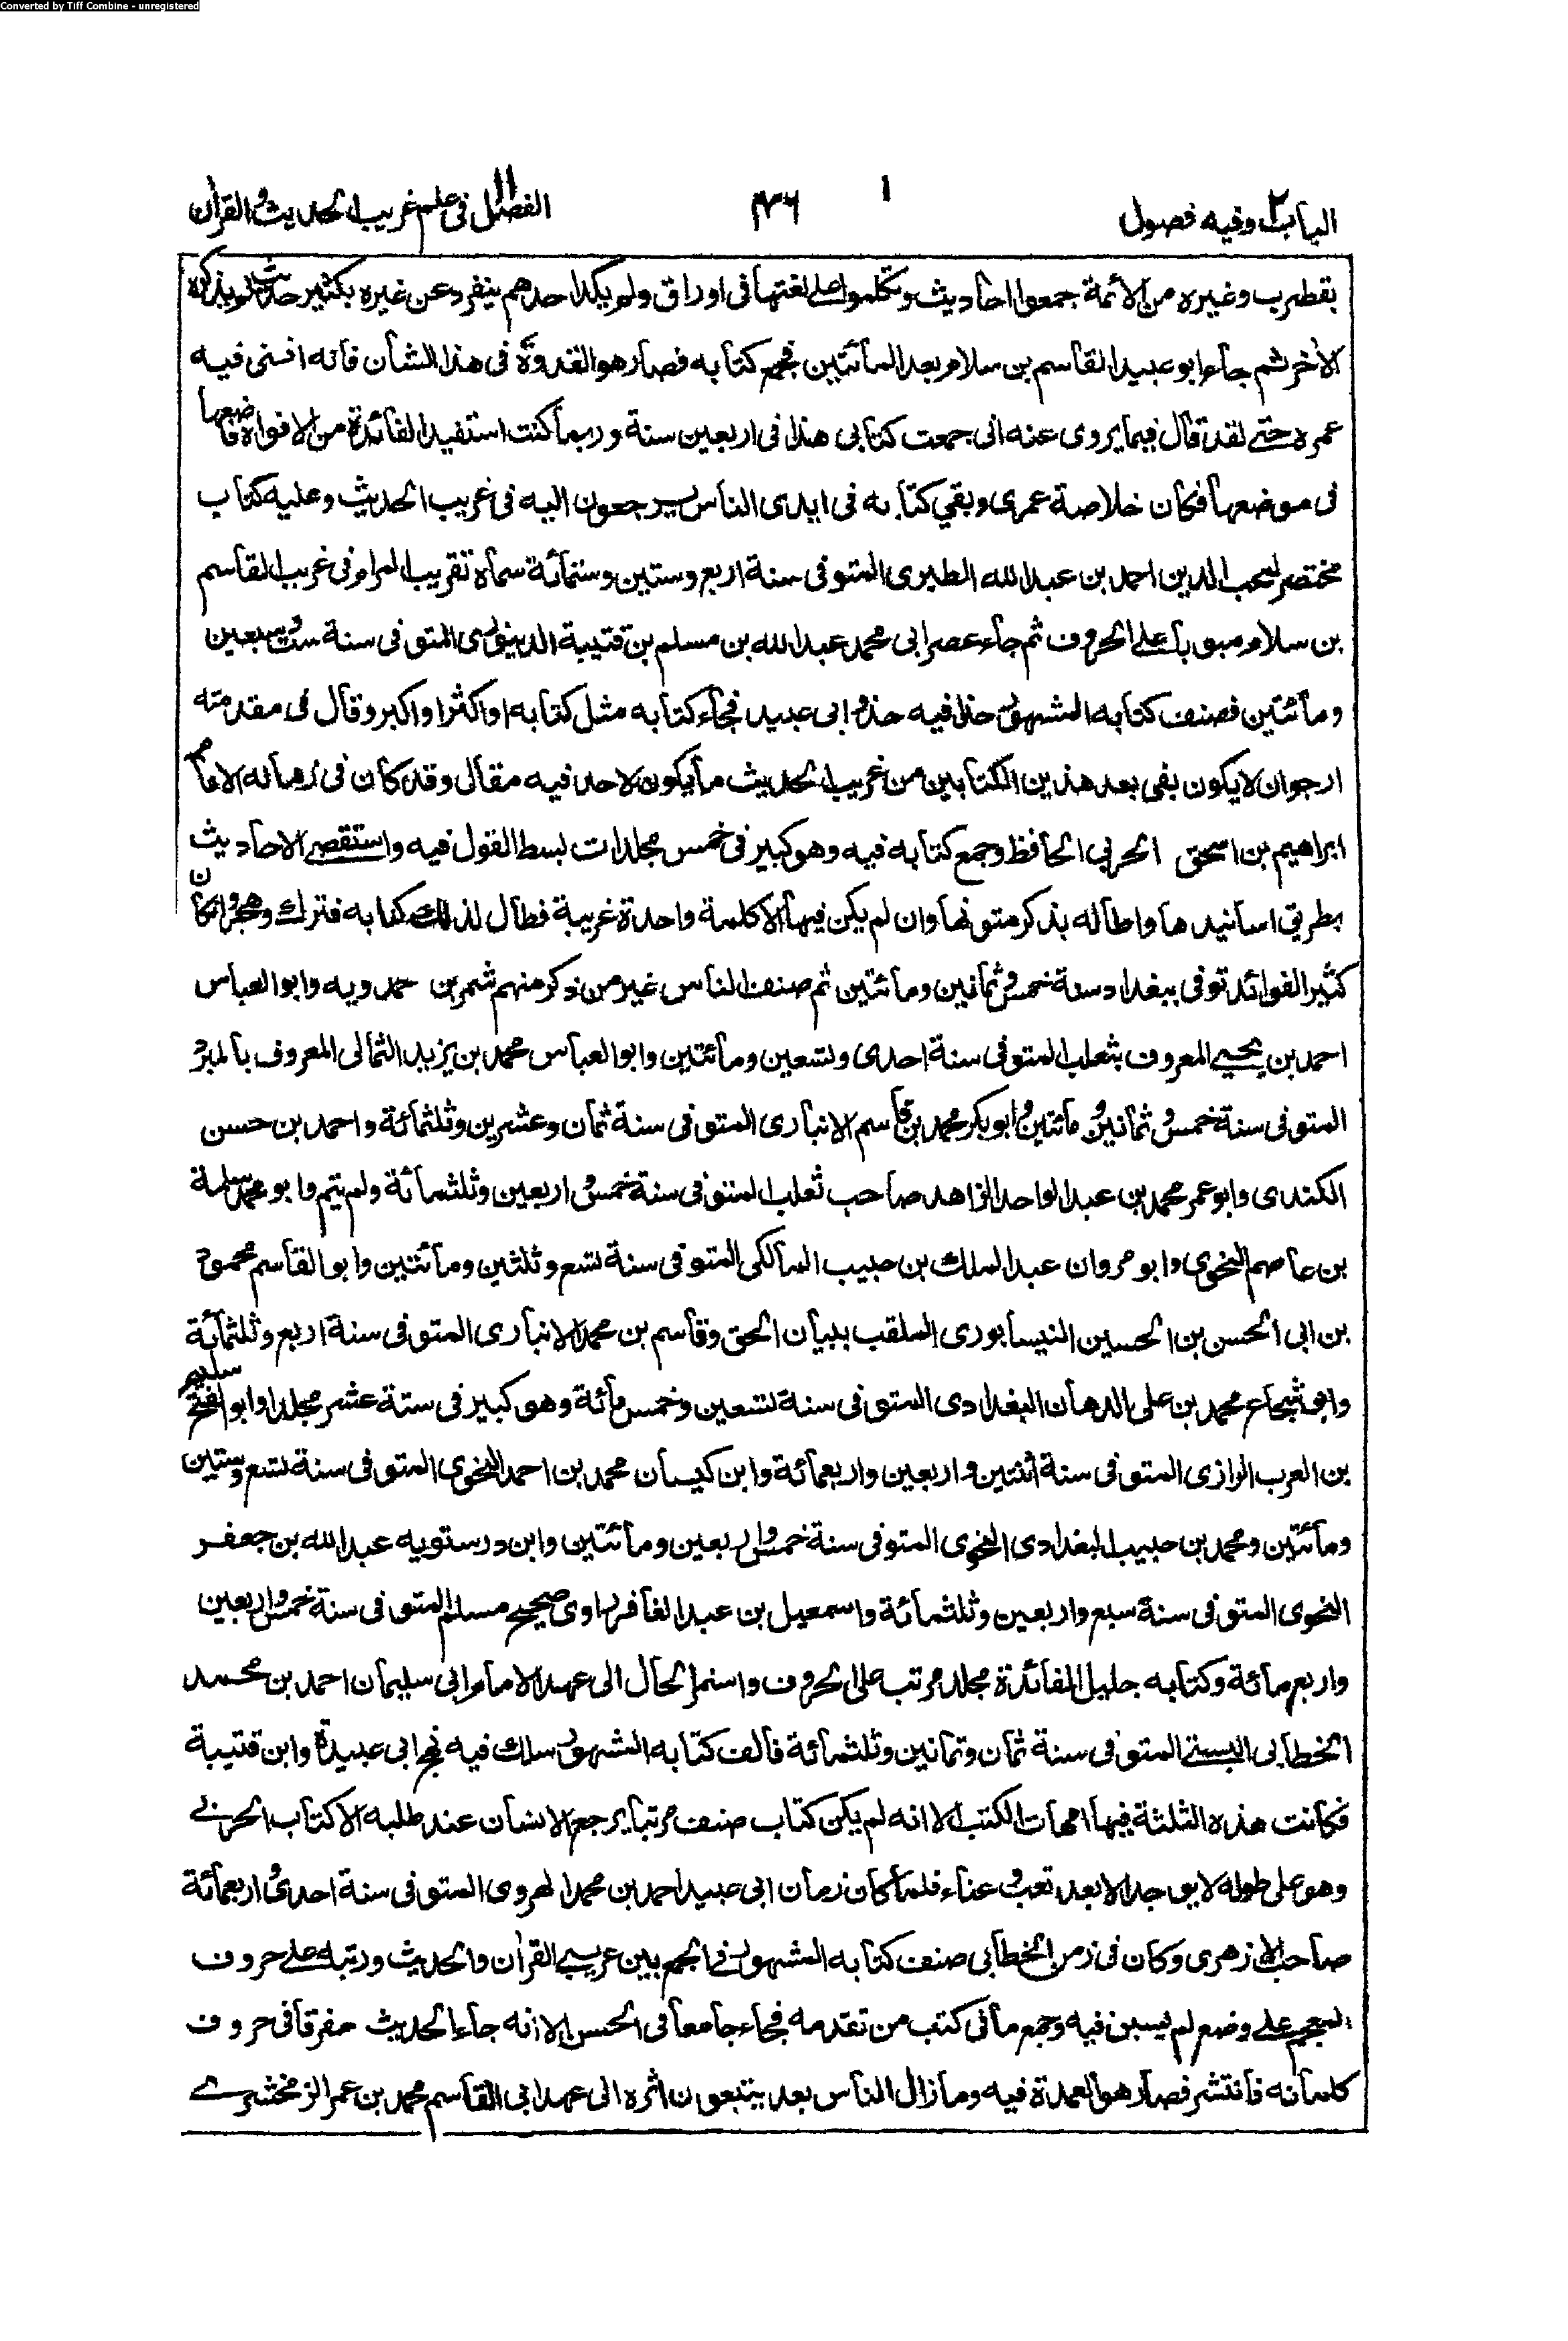 Converted by Tiff Combine - unregistered
الباب ٢ وفيه فصول
٣٦
الفصل ١١ فى علم غريب الحديث والقرأن
بقطرب وغيره من الائمة جمعوا احاديث وتكلموا على لغتها فى اوراق ولم يكد احدهم ينفرد عن غيره بكثير حديث لم يذكره
الأخر ثم جاء ابو عبيد القاسم بن سلام بعد المأئتين فجمع كتابه فصار هو القدوة فى هذا الشأن فانه افنى فيه
عمره حتى لقد قال فيما يروى عنه انى جمعت كتابى هذا فى اربعين سنة وربما كنت استفيد الفائدة من الافواه فاضعها
فى موضعها فكان خلاصة عمرى وبقي كتابه فى ايدى الناس يرجعون اليه فى غريب الحديث وعليه كتاب
مختصر لمحب الدين احمد بن عبد الله الطبرى المتوفى سنة اربع وستين وستمائة سماه تقريب المرام فى غريب القاسم
بن سلام مبوبا على الحروف ثم جاء عصر ابى محمد عبد الله بن مسلم بن قتيبة الدينورى المتوفى سنة ست وسبعين
ومأئتين فصنف كتابه المشهور حذا فيه حذو ابى عبيد فجاء كتابه مثل كتابه او اكثر او اكبر وقال فى مقدمته
ارجو ان لا يكون بقى بعد هذين الكتابين من غريب الحديث ما يكون لاحد فيه مقال وقد كان فى زمانه الامام
ابراهيم بن اسحق الحربي الحافظ وجمع كتابه فيه وهو كبير فى خمس مجلدات بسط القول فيه واستقصى الاحاديث
بطريق اسانيدها واطاله بذكر متونها وان لم يكن فيها الا كلمة واحدة غريبة فطال لذلك كتابه فترك وهجر وان كان
كثير الفوائد توفى ببغداد سنة خمس وثمانين ومأئتين ثم صنف الناس غير من ذكر منهم شمر بن حمدويه وابو العباس
احمد بن يحيى المعروف بثعلب المتوفى سنة احدى وتسعين ومأئتين وابو العباس محمد بن يزيد الثمالى المعروف بالمبرد
المتوفى سنة خمس وثمانين ومأئتين وابو بكر محمد بن قاسم الانبارى المتوفى سنة ثمان وعشرين وثلثمائة واحمد بن حسن
الكندى وابو عمر محمد بن عبد الواحد الزاهد صاحب ثعلب المتوفى سنة خمس واربعين وثلثمائة ولم يتم وابو محمد سلمة
بن عاصم النحوى وابو مروان عبد الملك بن حبيب المالكى المتوفى سنة تسع وثلثين ومأئتين وابو القاسم محمود
بن ابى الحسن بن الحسين النيسابورى الملقب ببيان الحق وقاسم بن محمد الانبارى المتوفى سنة اربع وثلثمائة
وابو شجاع محمد بن على الدهان البغدادى المتوفى سنة تسعين وخمس مائة وهو كبير فى ستة عشر مجلدا وابو الفتح سليم
بن العرب الرازى المتوفى سنة اثنتين واربعين واربعمائة وابن كيسان محمد بن احمد النحوى المتوفى سنة تسع وستين
ومأئتين ومحمد بن حبيب البغدادى النحوى المتوفى سنة خمس واربعين ومأئتين وابن درستويه عبد الله بن جعفر
النحوى المتوفى سنة سبع واربعين وثلثمائة واسمعيل بن عبد الغافر راوى صحيح مسلم المتوفى سنة خمس واربعين
واربع مائة وكتابه جليل الفائدة مجلد مرتب على الحروف واستمر الحال الى عهد الامام ابى سليمان احمد بن محمد
الخطابى البستى المتوفى سنة ثمان وثمانين وثلثمائة فالف كتابه المشهور سلك فيه نهج ابى عبيدة وابن قتيبة
فكانت هذه الثلثة فيها امهات الكتب الا انه لم يكن كتاب صنف مرتبا يرجع الانسان عند طلبه الا كتاب الحربى
وهو على طوله لا يوجد الا بعد تعب وعناء فلما كان زمان ابى عبيد احمد بن محمد الهروى المتوفى سنة احدى واربعمائة
صاحب الازهرى وكان فى زمن الخطابى صنف كتابه المشهور فى الجمع بين غريبى القرأن والحديث ورتبه على حروف
المعجم على وضع لم يسبق فيه وجمع ما فى كتب من تقدمه فجاء جامعا فى الحسن الا انه جاء الحديث مفرقا فى حروف
كلماته فانتشر فصار هو العمدة فيه وما زال الناس بعد يتبعون اثره الى عهد ابى القاسم محمد بن عمر الزمخشرى